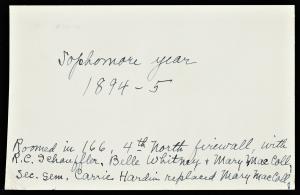 Sophomore year
1894-5
Roomed in 166, 4th North firewall, with
R.C. Schauffler, Belle Whitney + Mary MacColl,
Sec. Sem. Carrie Hardin replaced Mary MacColl